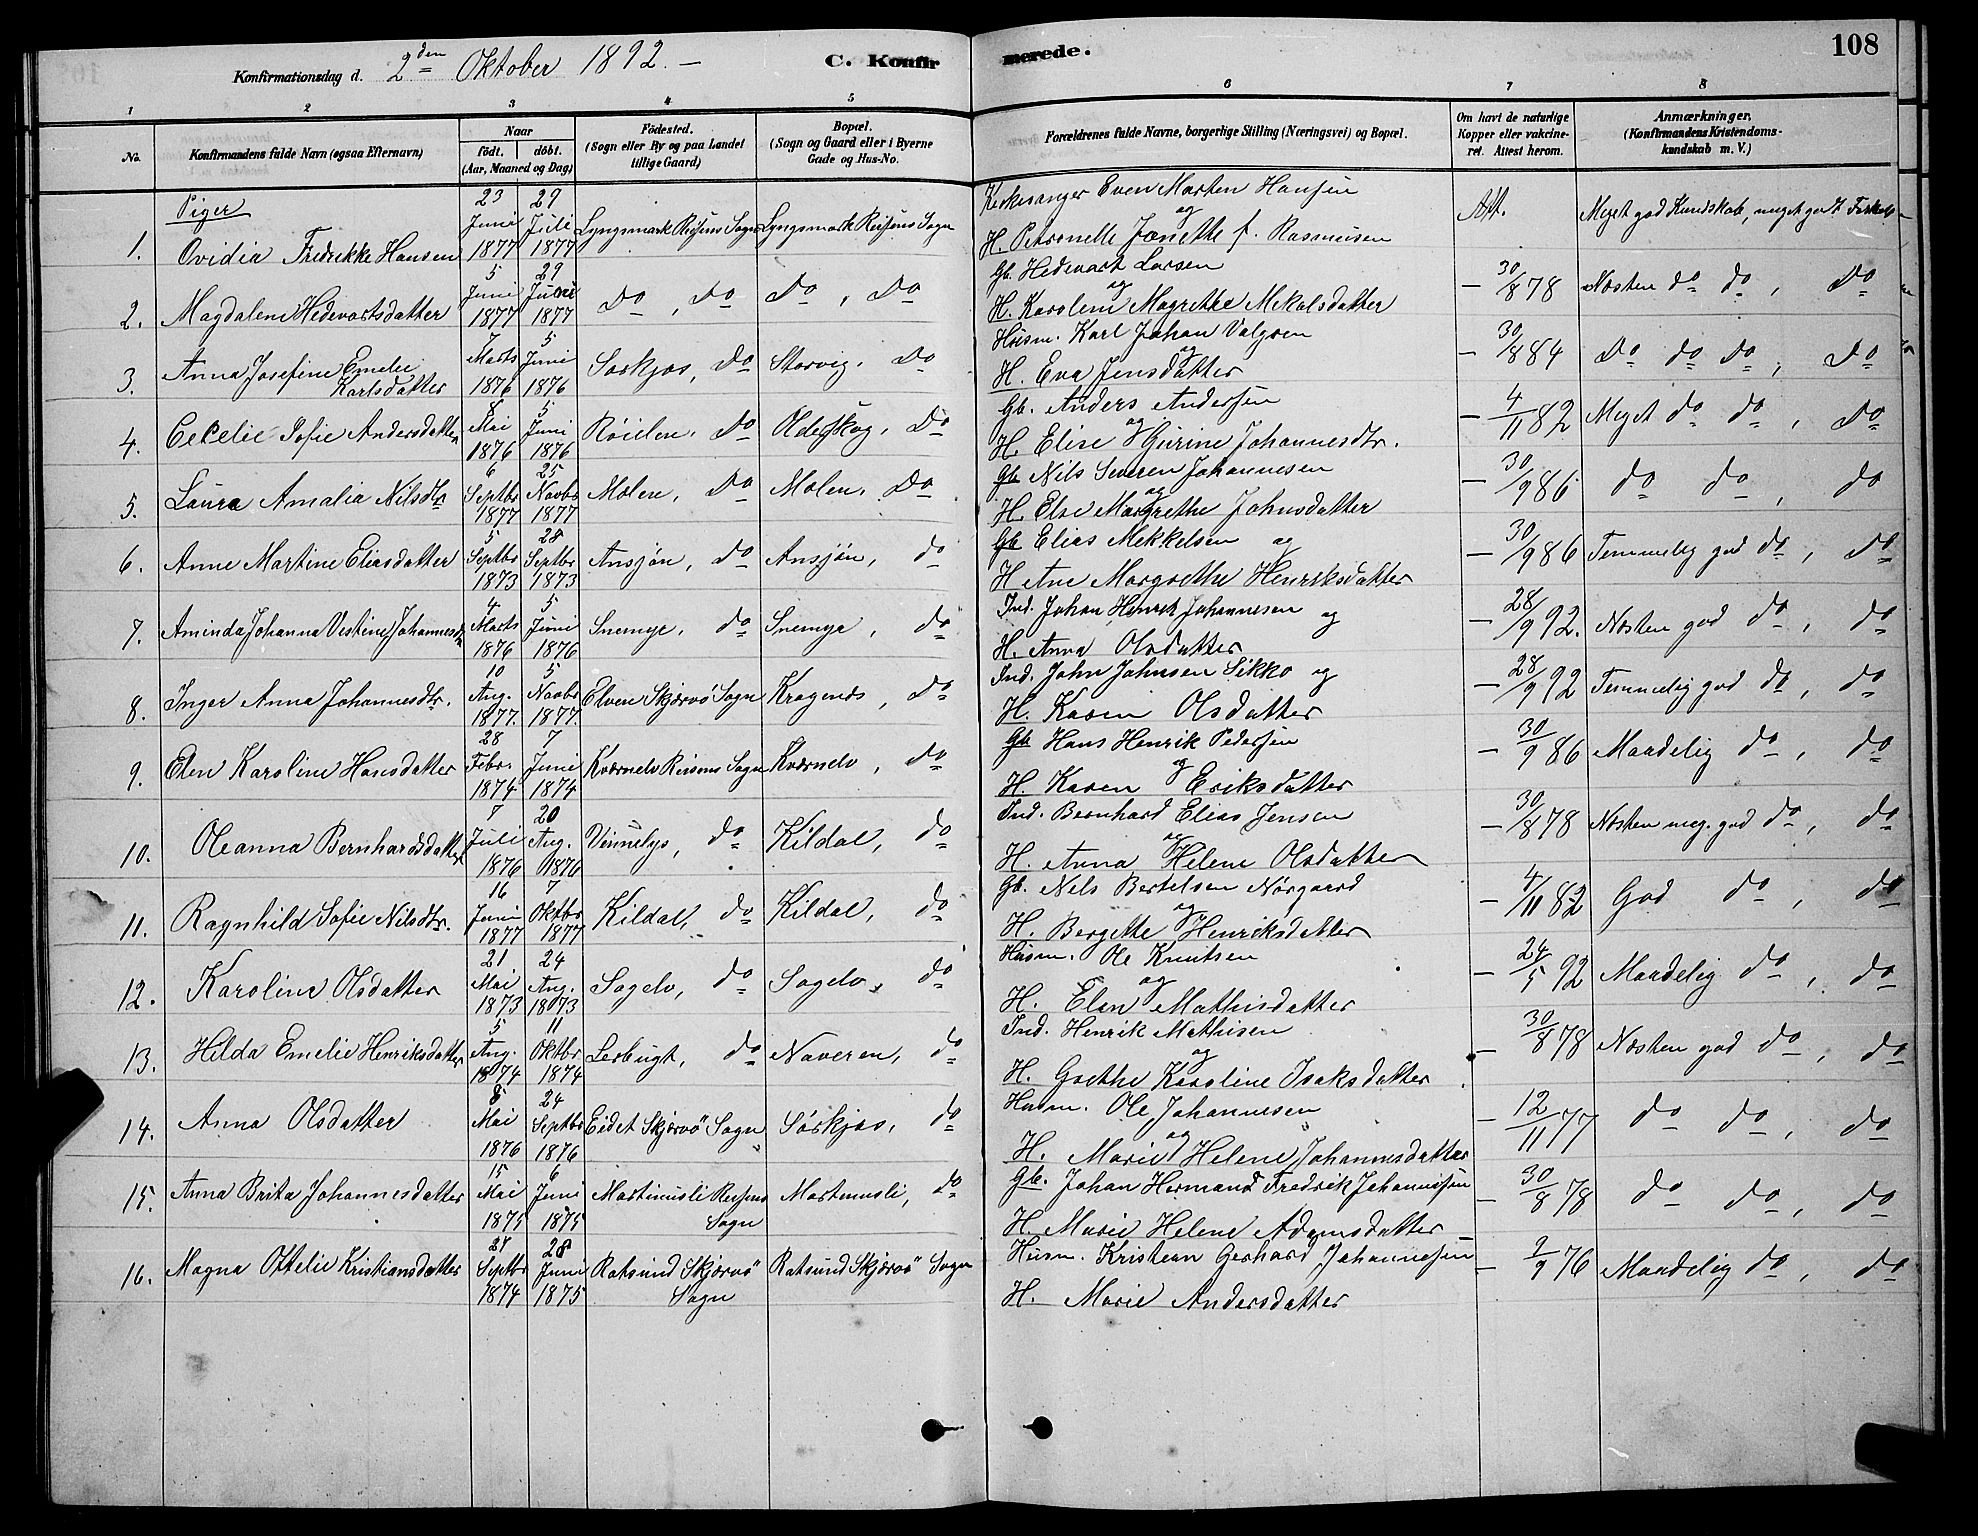 108
Konfirmationsdag d. 2den Oktober 1892. –
C. Konfirmerede.
1 2 3 4 5 6 7 8
No.
Konfirmandens fulde Navn (ogsaa Efternavn)
Naar
født. døbt.
(Aar, Maaned og Dag)
Fødested.
(Sogn eller By og paa Landet
tillige Gaard)
Bopæl.
(Sogn og Gaard eller i Byerne
Gade og Hus-No.
Forældrenes fulde Navne, borgerlige Stilling (Næringsvei) og Bopæl.
Om havt de naturlige
Kopper eller vakcineret. Attest herom.
Anmærkninger.
(Konfirmandens Kristendomskundskab m. V.)
Piger
1. Ovidia Fredrikke Hansen 23 Juni 1877 29 Juli 1877 Lyngsmark Reisens Sogn Lyngsmark Reisens Sogn Kirkesanger Even Morten Hansen og
H. Petronelle Janette f. Rasmusen Att. Meget god Kundskab, meget godt
2. Magdalene Hedevartsdatter 5 Juni 1877 29 Juni 1877 Do, Do Do, Do Gb. Hedevart Larsen og
H. Karolene Magrethe Mekalsdatter – 30/8 78 Næsten do do, Do
3. Anna Josefine Emelie Karlsdatter 7 Marts 1876 5 Juni 1876 Sørkjos, Do Storvig, Do Husm. Karl Johan Valgren og
H. Eva Jensdatter – 30/8 84 Do do Do, Do
4. Cecelie Sofie Andersdatter 8 Mai 1876 5 Juni 1876 Røielen, Do Olderskog, Do Gb. Anders Andersen og
H. Elise Gurine Johannesdtr. – 4/11 82 Meget do do, Do
5. Laura Amalia Nilsdtr 6 Septbr 1877 25 Novbr 1877 Molen, Do Molen, Do Gb Nils Severen Johannesen og
H. Else Margrethe Johnsdatter – 30/9 86 do do, do
6. Anne Martine Eliasdatter 5 Septbr 1873 28 Septbr 1873 Ansjøn, do Ansjøn, do Gb Elias Mekkelsen og
H Ane Margrethe Henriksdatter – 30/9 86 Temmelig god do, do
7. Aminda Johanna Vestine Johannesdtr 4 Marts 1876 5 Juni 1876 Snemyr, do Snemyr, do Ind. Johan Henrik Johannesen og
H. Anna Olsdatter – 28/9 92. Næsten god do, do
8. Inger Anna Johannesdtr. 10 Aug. 1877. 5 Novbr 1877. Elven Skjærvø Sogn Kragenæs, Do Ind. John Johnsen Sikko og
H. Karen Olsdatter – 28/9 92 Temmelig god do, do
9. Elen Karoline Hansdatter 28 Febr. 1874 7 Juni 1874 Kværnelv Reisens Sogn Kværnelv, do Gb Hans Henrik Pedersen og
H. Karen Eriksdatter – 30/9 86 Maadelig do, do
10. Oleanna Bernhardsdatter 7 Juli 1876 20 Aug. 1876 Vinnelys, do Kildal, do Ind. Bernhard Elias Jensen og
H. Anna Helene Olsdatter – 30/8 78 Næsten meg. god do, do
11. Ragnhild Sofie Nilsdtr. 16 Juni 1877 7 Oktbr 1877 Kildal, do Kildal, do Gb. Nels Bertelsen Nørgaard og
H. Bergette Henriksdatter – 4/11 82 God do, do
12. Karoline Olsdatter 21 Mai 1873 24 Aug. 1873 Sagelv, do Sagelv, do Husm. Ole Knutsen og
H. Elen Mathisdatter – 24/5 92 Maadelig do, do
13. Hilda Emelie Henriksdatter 5 Aug. 1874 11 Oktbr 1874 Lerbugt, do Naveren, do Ind. Henrik Mathisen og
H. Grethe Karoline Isaksdatter – 30/8 78 Næsten god do, do
14. Anna Olsdatter 8 Mai 1876 24 Septbr 1876 Eidet Skjærvø Sogn Sørkjos, do Husm. Ole Johannesen og
H. Marie Helene Johannesdatter – 12/11 77 do do, do
15. Anna Brita Johannesdatter 15 Mai 1875 6 Juni 1875 Martinusli Reisens Sogn Martinusli, do Gb. Johan Hermand Fredrik Johannesen
H. Marie Helene Adamsdatter – 30/8 78 do do, do
16. Magna Ottelie Kristiansdatter Septbr 1874 28 Juni 1875 Rotsund Skjærvø Sogn Rotsund Skjærvø Sogn Husm. Kristian Gerhard Johannesen
H. Marie Andersdatter – 9/9 76 Maadelig do, do